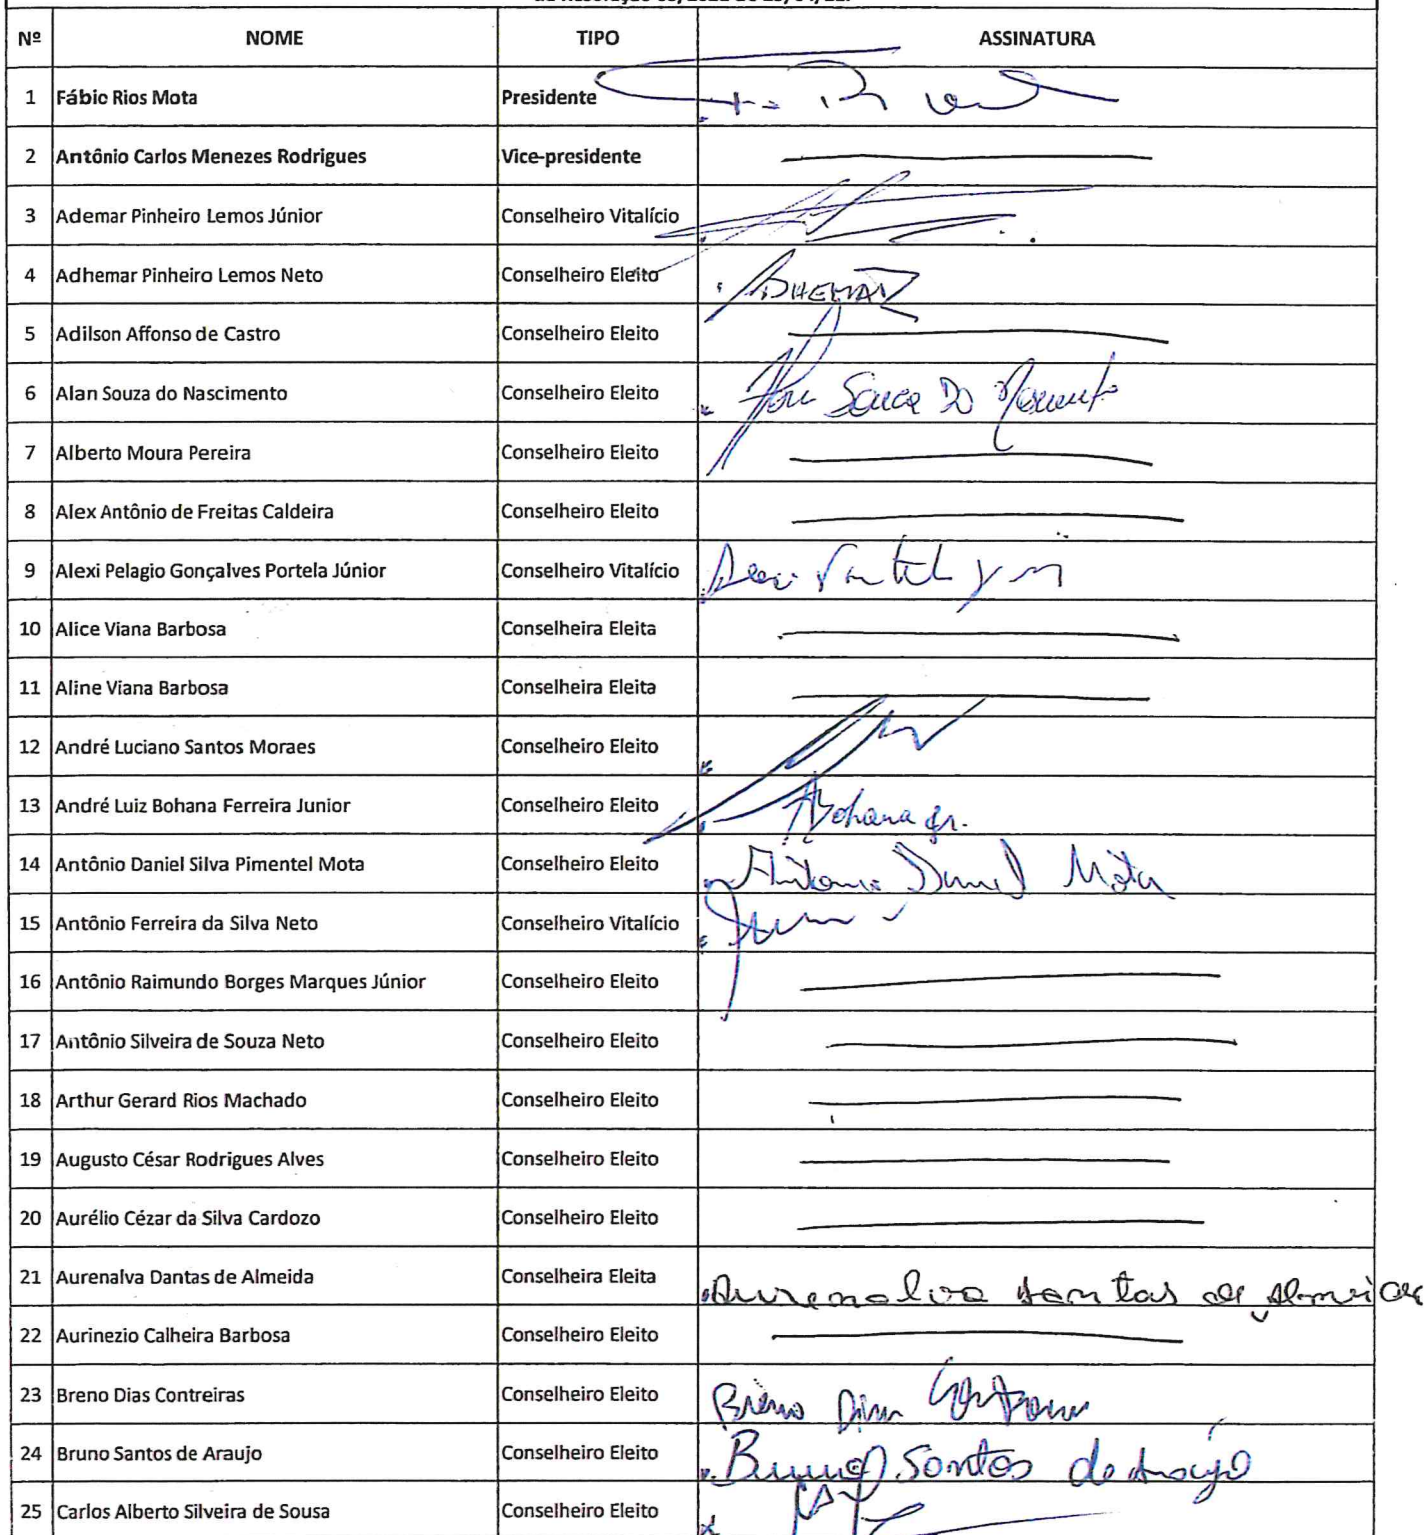 Nº NOME TIPO ASSINATURA
1 Fábio Rios Mota Presidente
2 Antônio Carlos Menezes Rodrigues Vice-presidente
3 Ademar Pinheiro Lemos Júnior Conselheiro Vitalício
4 Adhemar Pinheiro Lemos Neto Conselheiro Eleito
5 Adilson Affonso de Castro Conselheiro Eleito
6 Alan Souza do Nascimento Conselheiro Eleito
7 Alberto Moura Pereira Conselheiro Eleito
8 Alex Antônio de Freitas Caldeira Conselheiro Eleito
9 Alexi Pelagio Gonçalves Portela Júnior Conselheiro Vitalício
10 Alice Viana Barbosa Conselheira Eleita
11 Aline Viana Barbosa Conselheira Eleita
12 André Luciano Santos Moraes Conselheiro Eleito
13 André Luiz Bohana Ferreira Junior Conselheiro Eleito ABohana Jr.
14 Antônio Daniel Silva Pimentel Mota Conselheiro Eleito Antonio Daniel Mota
15 Antônio Ferreira da Silva Neto Conselheiro Vitalício
16 Antônio Raimundo Borges Marques Júnior Conselheiro Eleito
17 Antônio Silveira de Souza Neto Conselheiro Eleito
18 Arthur Gerard Rios Machado Conselheiro Eleito
19 Augusto César Rodrigues Alves Conselheiro Eleito
20 Aurélio Cézar da Silva Cardozo Conselheiro Eleito
21 Aurenalva Dantas de Almeida Conselheira Eleita Aurenalva Dantas de Almeida
22 Aurinezio Calheira Barbosa Conselheiro Eleito
23 Breno Dias Contreiras Conselheiro Eleito Breno Dias Contreiras
24 Bruno Santos de Araujo Conselheiro Eleito Bruno Santos de Araujo
25 Carlos Alberto Silveira de Sousa Conselheiro Eleito